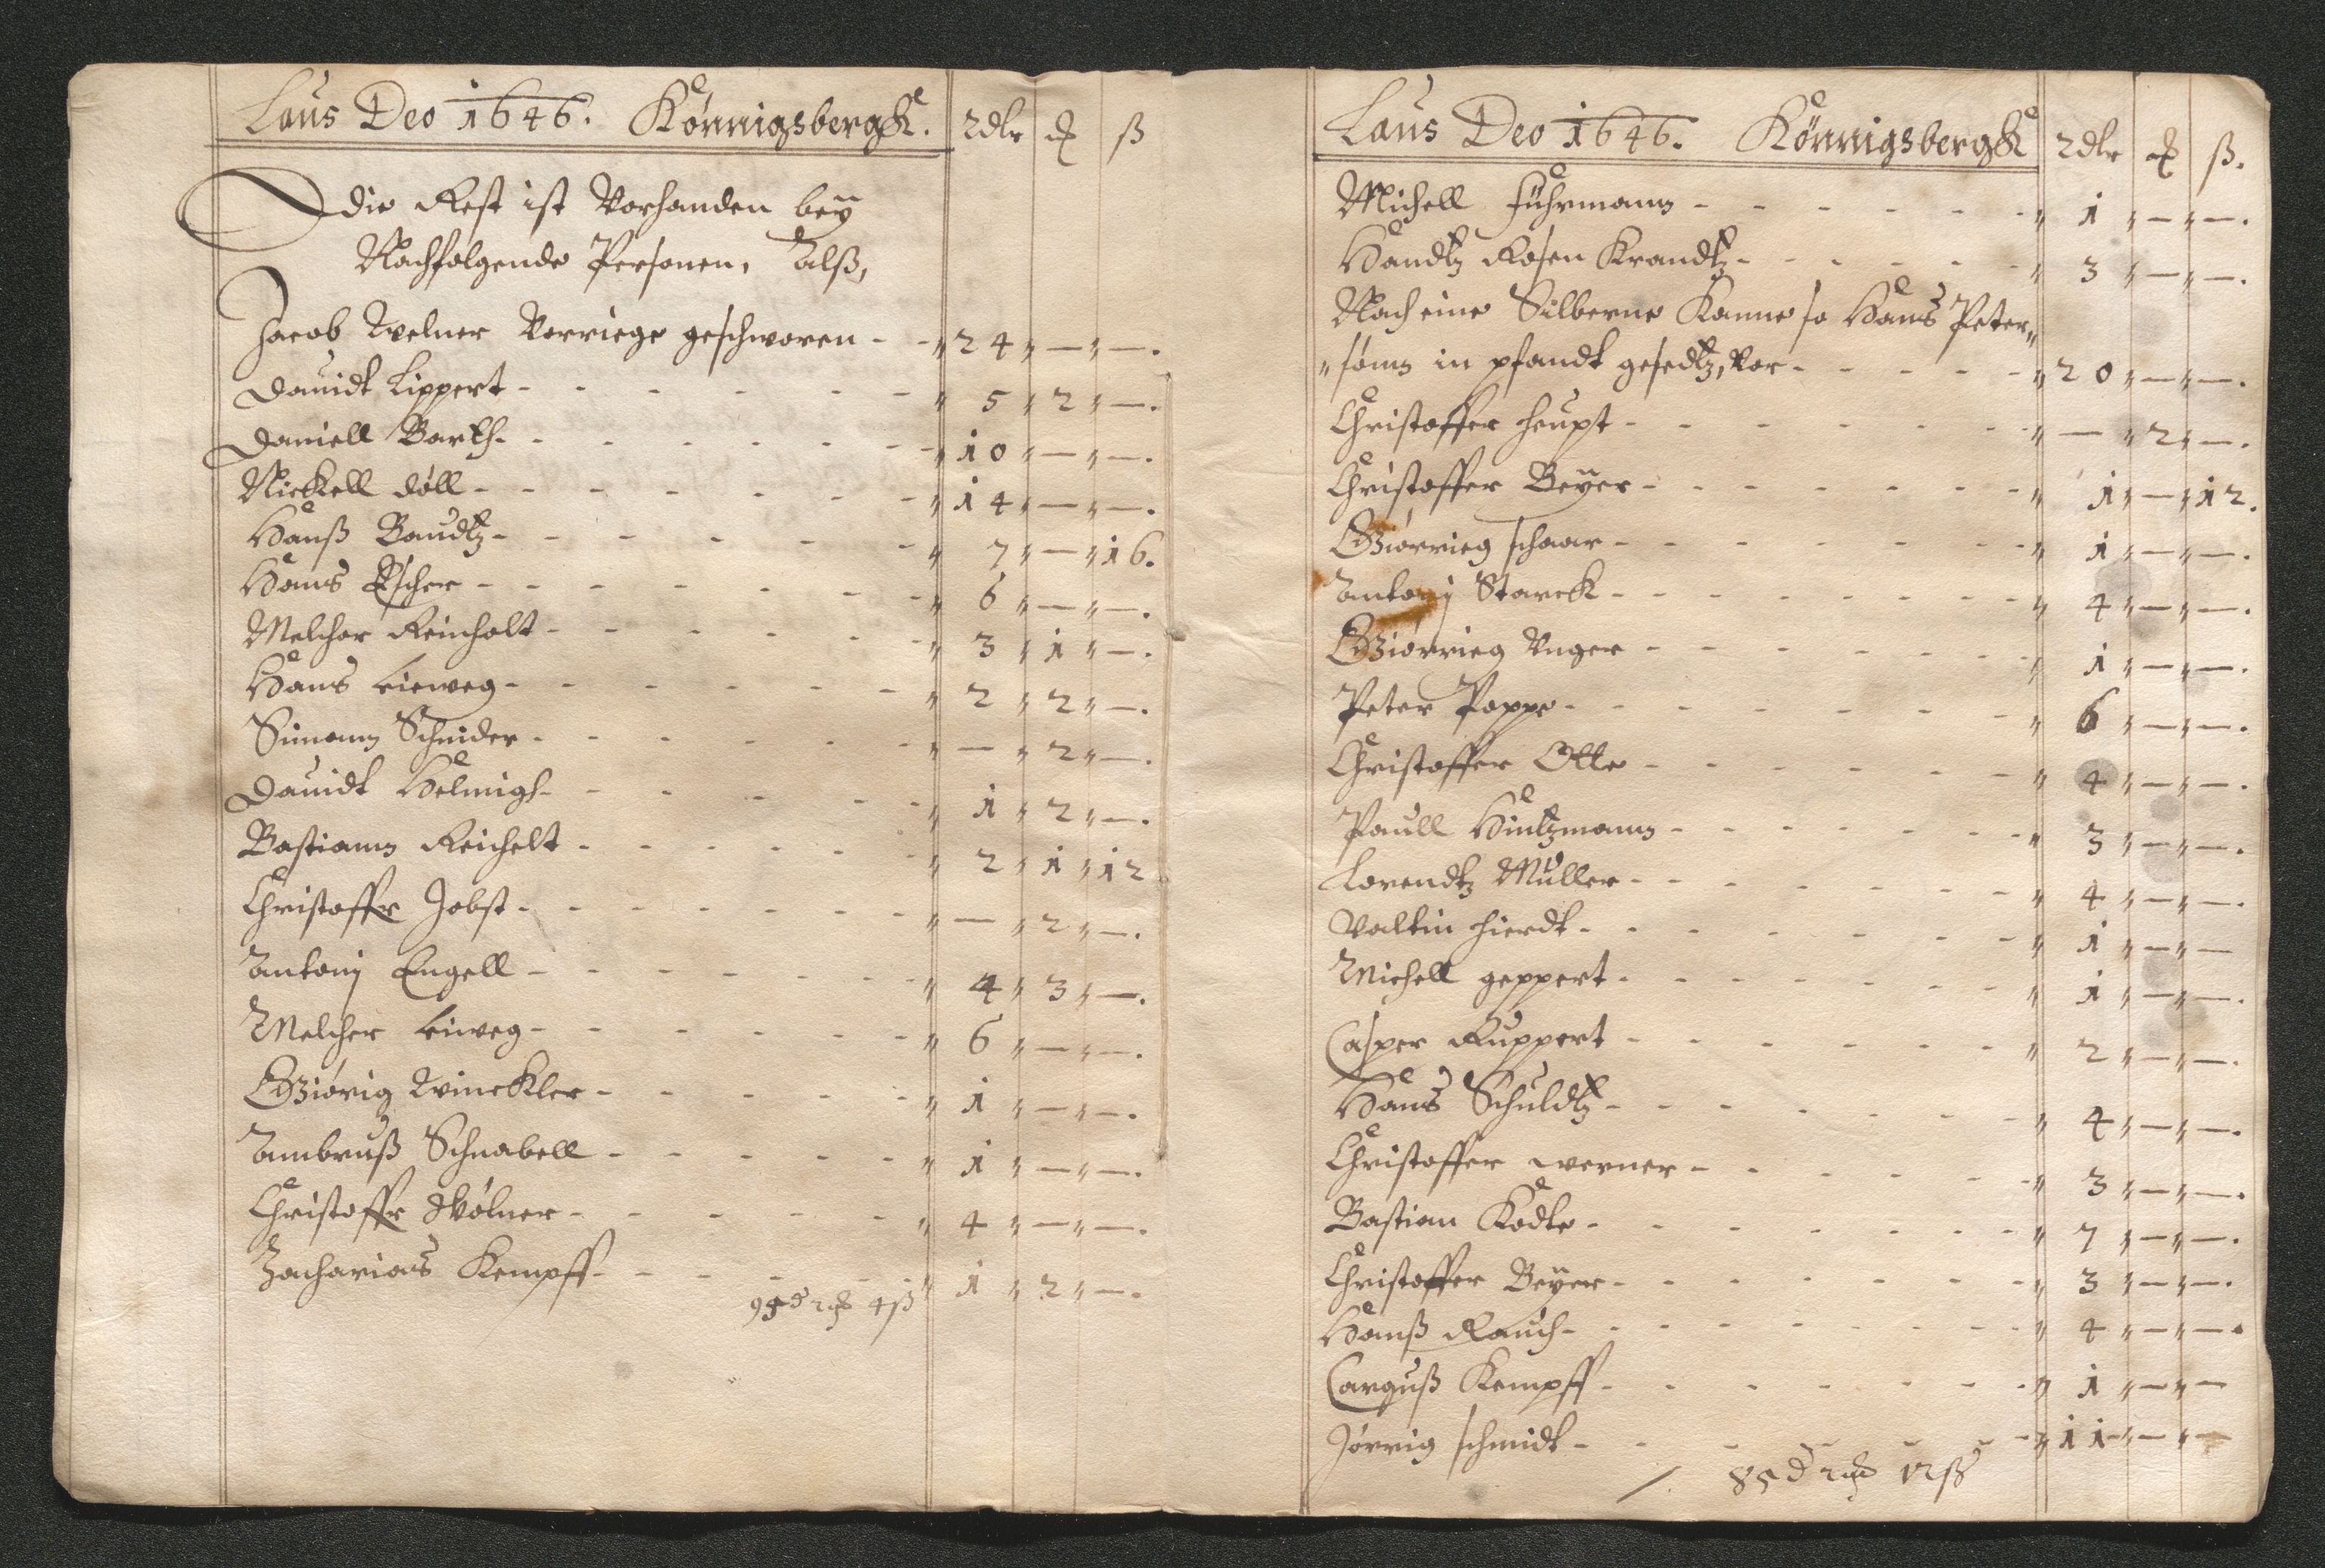 Laus Deo 1646. Königsbergk. Rdlr ß
die Rest ist Vorhanden beÿ
Nachfolgende Personen, Alß,
Jacob Welner Vorriege geschworen - - " 24 " — " —.
Dauidt Lippert - - - - - - " 5 " 2 " —.
Daniell Barth - - - - - - " 10 " — " —.
Nickell Döll - - - - - - " 14 " — " —.
Hanß Baudtz - - - - - - " 7 " — " 16.
Hans Escher - - - - - - " 6 " — " —.
Melcher Reinholt - - - - - " 3 " 1 " —.
Hans Lieweg - - - - - - " 2 " 2 " —.
Simonn Schnider - - - - - " — " 2 " —.
Dauidt Helmigh - - - - - " 1 " 2 " —.
Bastiann Reichelt - - - - - " 2 " 1 " 12
Christoffr Jobst - - - - - - " — " 2 " —.
Antonj Engell - - - - - - " 4 " 3 " —.
Melcher Liweg - - - - - - " 6 " — " —.
Giörig Winckler - - - - - " 1 " — " —.
Ambruß Schnabell - - - - - " 1 " — " —.
Christoffr Wölner - - - - - " 4 " — " —.
Zacharias Kempff - - - - - " 1 " 2 " —.
4 ß
Laus Deo 1646. Königsbergk Rdlr ß.
Michell Führmann - - - - - - " 1 " — " —.
Handtz Rosen Krandtz - - - - - " 3 " — " —.
Noch eine Silberne Kanne so Hans Peter"
"sonn in pfandt gesedtz, Vor - - - - - " 20 " — " —.
Christoffer Heupt - - - - - - " — " 2 " —.
Christoffer Beÿer - - - - - - " 1 " — " 12.
Giörrieg Schaar - - - - - - " 1 " — " —.
Antonj Starck - - - - - - " 4 " — " —.
Giörrieg Vnger - - - - - - " 1 " — " —.
Peter Poppe - - - - - - " 6 " — " —.
Christoffer Otte - - - - - - " 4 " — " —.
Paull Hintzmann - - - - - - " 3 " — " —.
Lorendtz Müller - - - - - - " 4 " — " —.
Valtin Hierdt - - - - - - " 1 " — " —
Michell Geppert - - - - - - " 1 " — " —.
Casper Ruppert - - - - - - " 2 " — " —.
Hans Schuldtz - - - - - - " 4 " — " —.
Christoffer Werner - - - - - " 3 " — " —.
Bastian Kodte - - - - - - " 7 " — " —.
Christoffer Beÿer - - - - - - " 3 " — " —.
Hanß Rauch - - - - - - " 4 " — " —.
Carguß Kempff - - - - - - " 1 " — " —
Jörrig Schmidt - - - - - - " 11 " — " —
85 12 ß